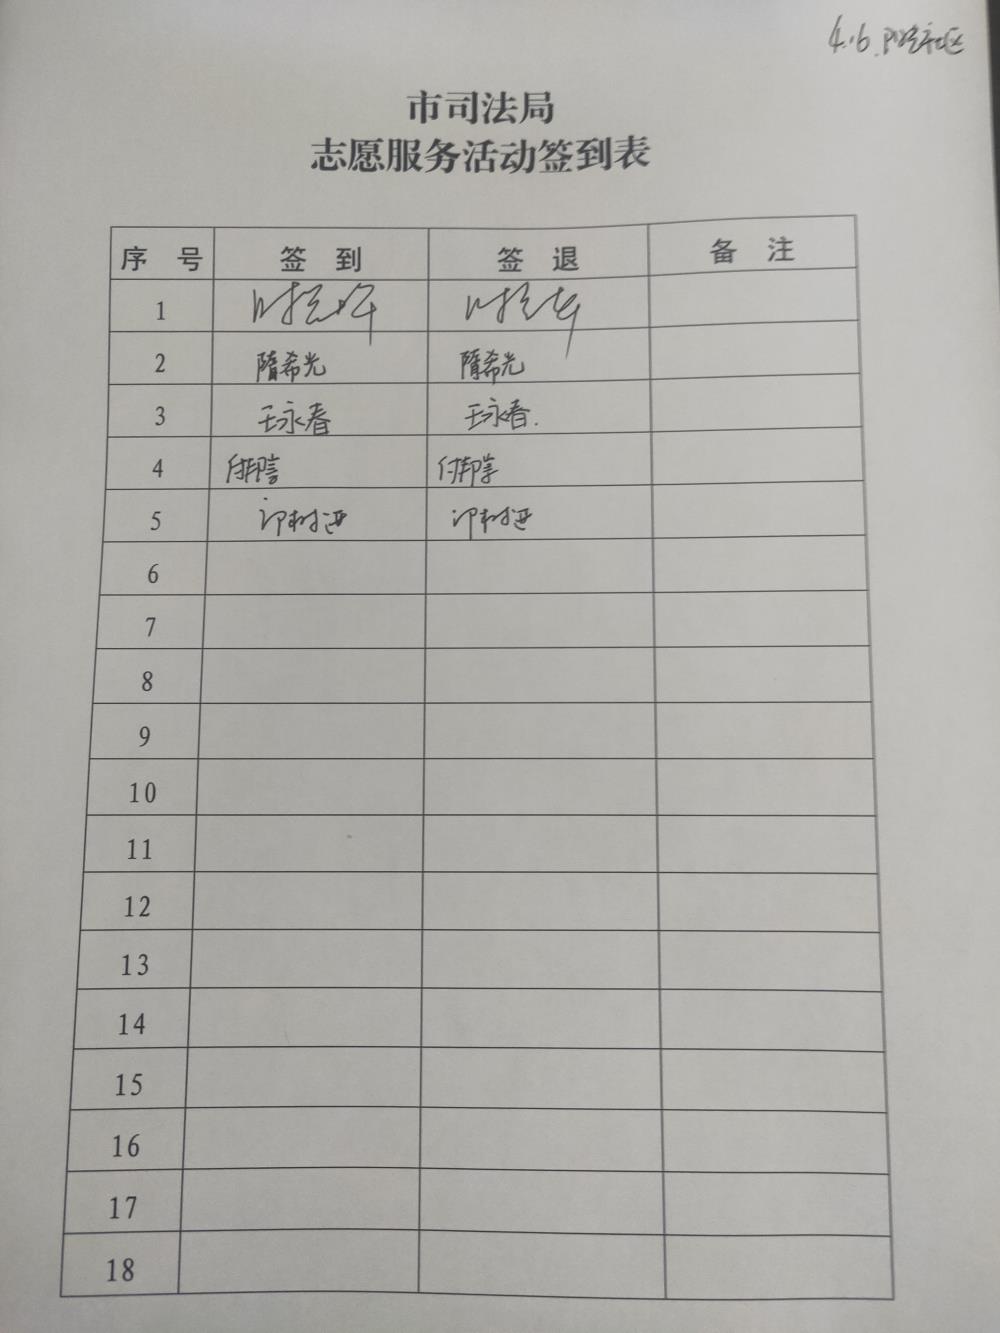 4.6
市司法局
志愿服务活动签到表
序 号 签 到 签 退 备 注
1
2 隋希光 隋希光
3 王永春 王永春.
4
5
6
7
8
9
10
11
12
13
14
15
16
17
18